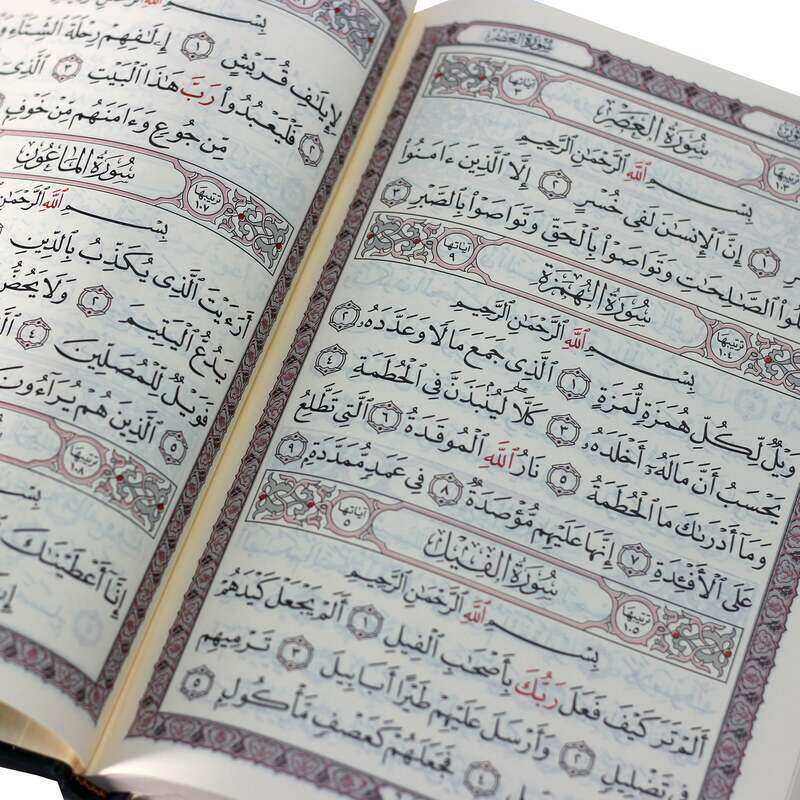 سورة العصر
آياتها ٣
سُورَةُ العَصْرِ
ترتيبها ١٠٣
بِسْمِ ٱللَّهِ ٱلرَّحْمَٰنِ ٱلرَّحِيمِ
١ إِنَّ ٱلْإِنسَٰنَ لَفِى خُسْرٍ ٢ إِلَّا ٱلَّذِينَ ءَامَنُوا۟
ٱلصَّٰلِحَٰتِ وَتَوَاصَوْا۟ بِٱلْحَقِّ وَتَوَاصَوْا۟ بِٱلصَّبْرِ ٣
آياتها ٩
سُورَةُ الهُمَزَةِ
ترتيبها ١٠٤
بِسْمِ ٱللَّهِ ٱلرَّحْمَٰنِ ٱلرَّحِيمِ
وَيْلٌ لِّكُلِّ هُمَزَةٍ لُّمَزَةٍ ١ ٱلَّذِى جَمَعَ مَالًا وَعَدَّدَهُۥ ٢
يَحْسَبُ أَنَّ مَالَهُۥٓ أَخْلَدَهُۥ ٣ كَلَّا ۖ لَيُنۢبَذَنَّ فِى ٱلْحُطَمَةِ ٤
وَمَآ أَدْرَىٰكَ مَا ٱلْحُطَمَةُ ٥ نَارُ ٱللَّهِ ٱلْمُوقَدَةُ ٦ ٱلَّتِى تَطَّلِعُ
عَلَى ٱلْأَفْـِٔدَةِ ٧ إِنَّهَا عَلَيْهِم مُّؤْصَدَةٌ ٨ فِى عَمَدٍ مُّمَدَّدَةٍۭ ٩
آياتها ٥
سُورَةُ الفِيلِ
ترتيبها ١٠٥
بِسْمِ ٱللَّهِ ٱلرَّحْمَٰنِ ٱلرَّحِيمِ
أَلَمْ تَرَ كَيْفَ فَعَلَ رَبُّكَ بِأَصْحَٰبِ ٱلْفِيلِ ١ أَلَمْ يَجْعَلْ كَيْدَهُمْ
فِى تَضْلِيلٍ ٢ وَأَرْسَلَ عَلَيْهِمْ طَيْرًا أَبَابِيلَ ٣ تَرْمِيهِم
٤ فَجَعَلَهُمْ كَعَصْفٍ مَّأْكُولٍۭ ٥
بِسْمِ ٱللَّهِ ٱلرَّحْمَٰنِ
لِإِيلَٰفِ قُرَيْشٍ ١ إِۦلَٰفِهِمْ رِحْلَةَ ٱلشِّتَآءِ
٢ فَلْيَعْبُدُوا۟ رَبَّ هَٰذَا ٱلْبَيْتِ ٣ ٱلَّذِىٓ
مِّن جُوعٍ وَءَامَنَهُم مِّنْ خَوْفٍۭ
سُورَةُ المَاعُونِ
ترتيبها ١٠٧
بِسْمِ ٱللَّهِ ٱلرَّحْمَٰنِ
أَرَءَيْتَ ٱلَّذِى يُكَذِّبُ بِٱلدِّينِ
يَدُعُّ ٱلْيَتِيمَ ٢ وَلَا يَحُضُّ
فَوَيْلٌ لِّلْمُصَلِّينَ ٤
ٱلَّذِينَ هُمْ يُرَآءُونَ
٥
ترتيبها ١٠٨
بِسْمِ
إِنَّآ أَعْطَيْنَٰكَ